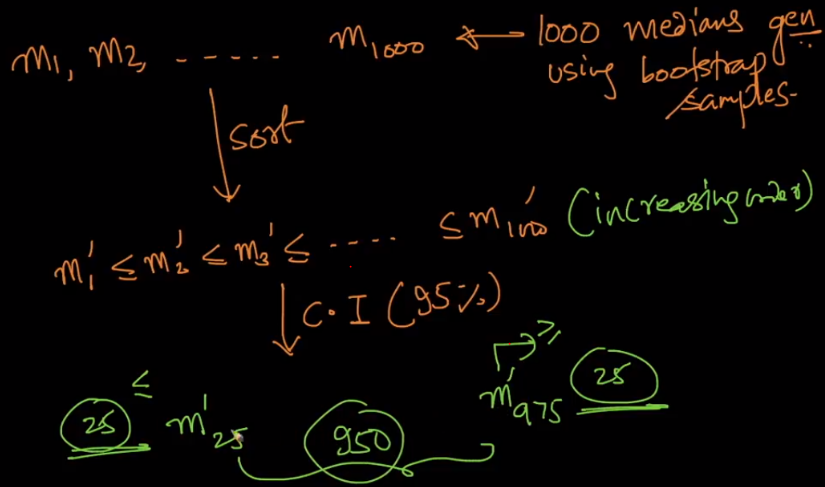 m₁, m₂, ----- m₁₀₀₀ ← 1000 medians gen
using bootstrap
samples-
sort
m₁' ≤ m₂' ≤ m₃' ≤ ---- ≤ m₁₀₀₀' (increasing order)
C.I (95%)
≤ ≥
25 m'₂₅ 950 m'₉₇₅ 25